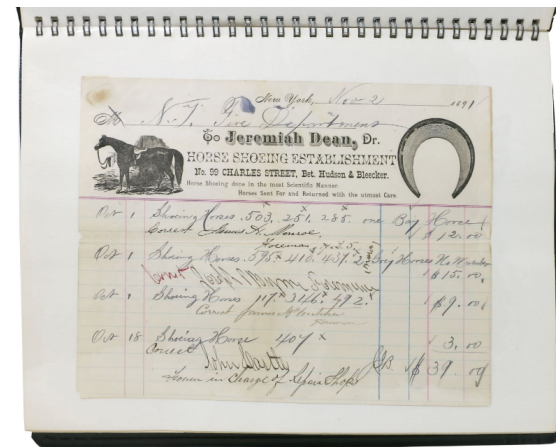 New York, Nov 2 1891
M N.Y. Fire Department
To Jeremiah Dean, Dr.
HORSE SHOEING ESTABLISHMENT
No. 99 CHARLES STREET, Bet. Hudson & Bleecker.
Horse Shoeing done in the most Scientific Manner.
Horses Sent For and Returned with the utmost Care.
Oct 1 Shoeing Horses 503. 251. 285. one Bay Horse
Correct Monroe $ 12.00
Foreman
Oct 1 Shoeing Horses 595 410. 437. 2 Horses No
Correct Foreman $ 15.00
Oct 1 Shoeing Horses 117 346 492. $ 9.00
Correct James
Foreman
Oct 18 Shoeing Horse 407 x 3.00
Correct
John $ 39.00
Foreman in Charge of Repair Shops